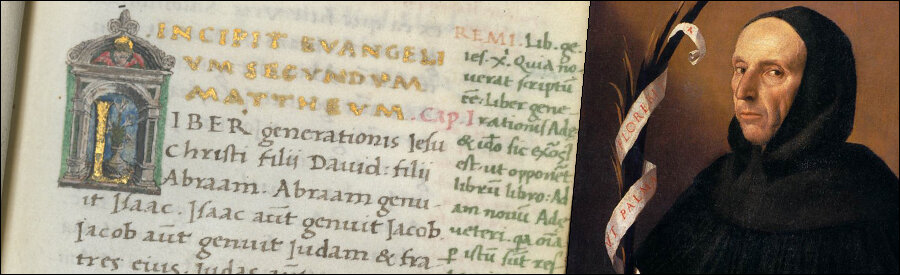 INCIPIT EVANGELI
VM SECVNDVM
MATTHEVM. CAP. I
LIBER generationis Iesu
Christi filii Dauid: filii
Abraam. Abraam genu-
it Isaac. Isaac aut̃ genuit Jacob.
Jacob aut̃ genuit Judam & fra-
tres eius. Judas
REMI. Lib. ge
Quia no
uerat scriptu
Liber gene
rationis Adę
& sic
est. ut opponet
librũ libro: Ad
am nouũ Adę
ueteri. oĩa
p istũ sũt res
VT PALM
FLORE